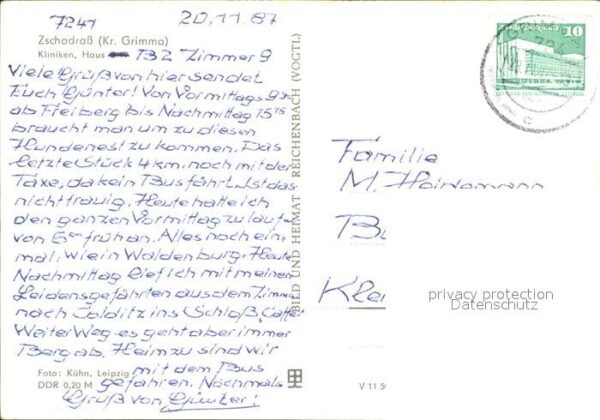 7241 20.11.87
Zschadraß (Kr. Grimma)
Kliniken, Haus B2 Zimmer 9
Viele Grüß von hier sendet
Euch Günter! Von Vormittags 9
ab Freiberg bis Nachmittag 15
braucht man um zu diesen
Hundenest zu kommen. Das
letzte Stück 4 km, noch mit der
Taxe, da kein Bus fährt. Ist das
nicht traurig. Heute hatte ich
den ganzen Vormittag zu laufe
von 6 früh an. Alles noch ein,
mal, wie in Waldenburg. Heute
Nachmittag lief ich mit meinen
Leidensgefährten aus dem Zimme
nach Colditz ins Schloß,
Weiter Weg es geht aber immer
Berg ab. Heim zu sind wir
mit dem Bus
gefahren. Nochmals
Gruß von Günter!
Foto: Kühn, Leipzig
DDR 0,20 M
BILD UND HEIMAT REICHENBACH (VOGTL)
V 11 50
10
Familie
M.